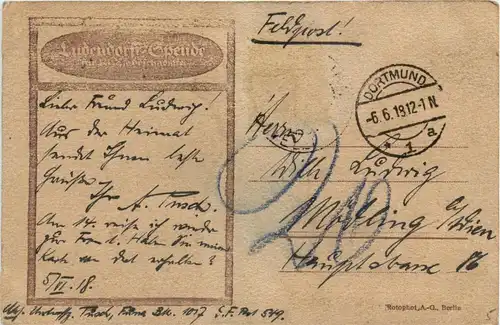 Ludendorff-Spende
für Kriegsbeschädigte
Feldpost!
DORTMUND
-6.6.18.12-1N.
* 1 a
Lieber Freund Ludwig!
Aus der Heimat
sendet Ihnen beste
Grüsse
Ihr A. Pusch.
Am 14. reise ich wieder
zur Front. Haben Sie meine
Karte von dort erhalten?
5/VI.18.
Herrn
Ludwig
Mödling b/Wien
Hauptstrasse
Rotophot, A.-G., Berlin
Pusch, 1017